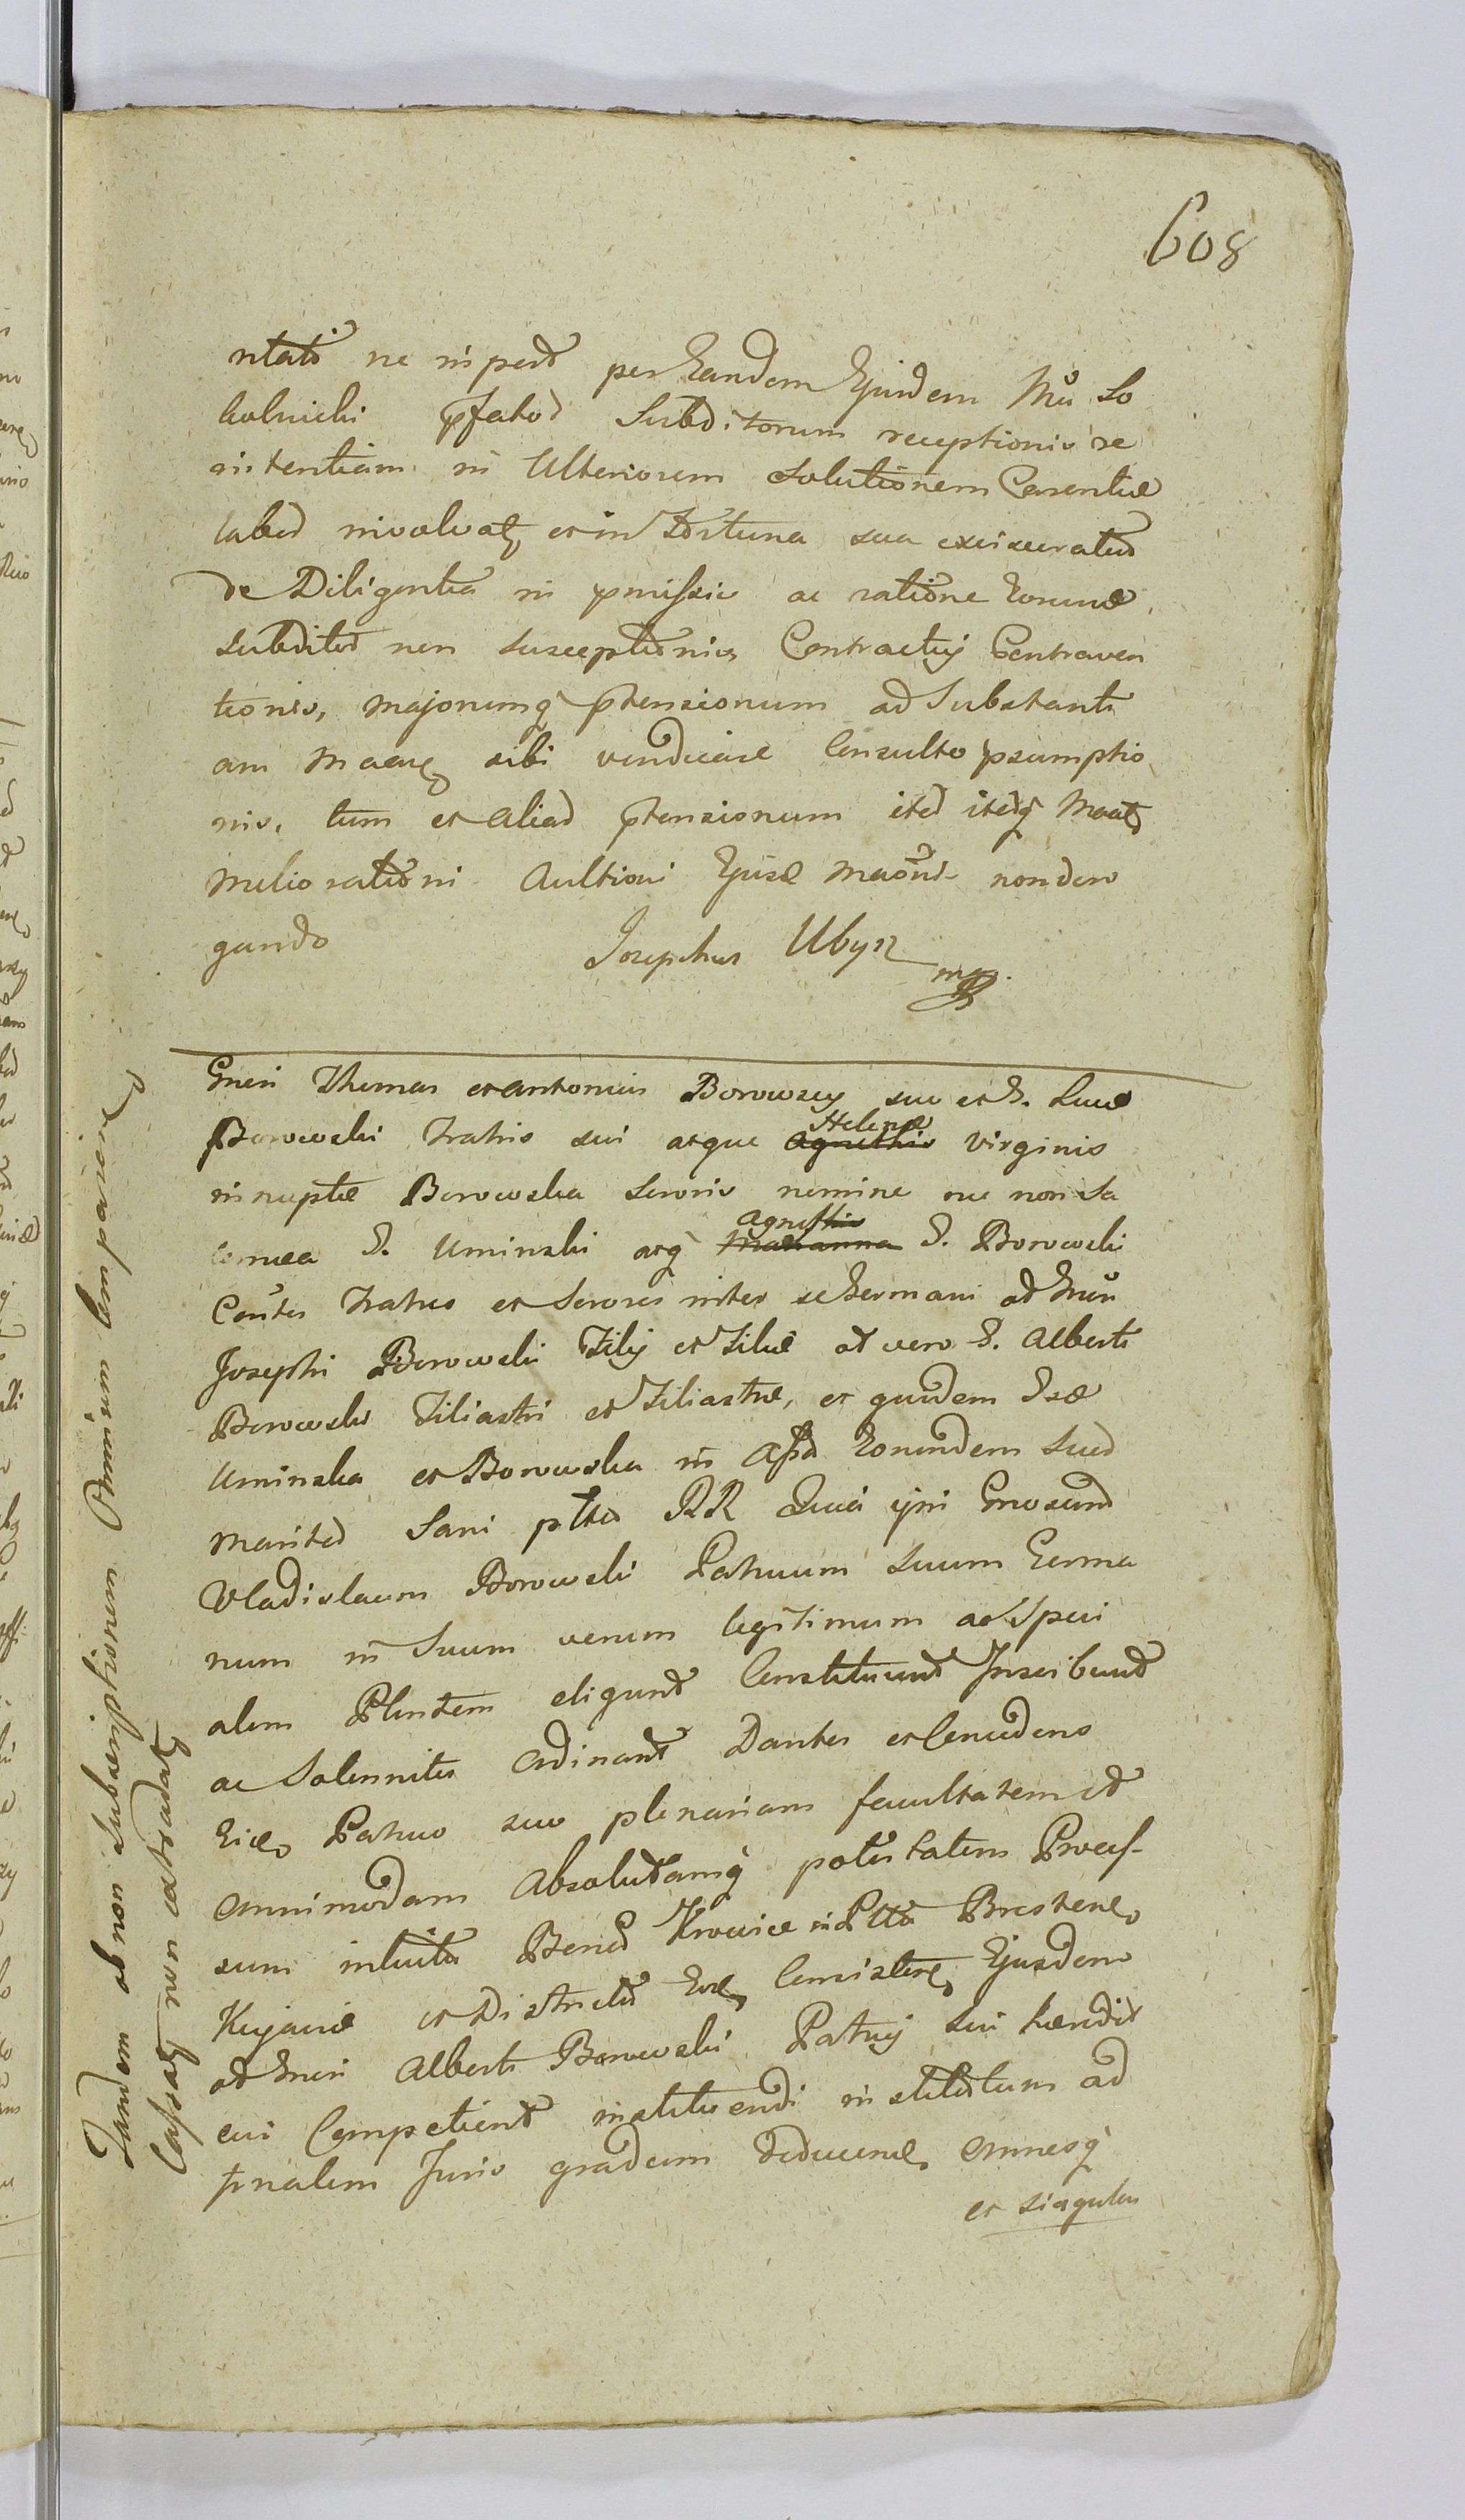 608
ntatō ne in perd per Eandem Ejusdem Mci So
kolnicki pfatod Subditorum receptionis re
nitentiam in Ulteriorem Solutionem
involvat et in Fortuna sua
de Diligentia in pmissis ac ratione Eorund
Subditod non susceptionis Contractus Contraven
tionis, majorumq ptensionum ad Substanti
am sibi vendicare Consulto psumptio
nis, tum et aliad ptensionum
Meliorationi Auctioni Ejusd non dero
gando Josephus Ubysz mp.
Gnesi Thomas et Antonius Borowscy suo et G. Luce
Borowski Fratris sui atque Agnethis Helenæ virginis
innuptæ Borowska Sororis nomine nec non Sa
lomea G. Uminski atq Marianna Agnethis G. Borowski
Contes Fratres et Sorores inter se Germani ad Gnesi
Josephi Borowski Filij et Filiæ at vero G. Alberti
Borowski Filiastri et Filiastræ, et quidem Gsæ
Uminska et Borowska in Assa Eorundem Suod
Maritod Sani RR Quia ipsi Gnosum
Vladislaum Borowski Patruum Suum Germa
num in Suum verum legitimum ac Speci
alem Plentem eligunt Constituunt Inscibunt
ac Solenniter Ordinant Dantes et Concedens
Eid Patruo suo plenariam facultatem et
omnimodam absolutamq potestatem Process-
sum intuitu Bonod Krowice in Pttu Brestens
Kujaviæ et Districtu Consisten Ejusdem
ad Gnesi Alberti Borowski Patruj sui hæredit
eui Competient instituendi institutum ad
fnalem Juris gradum deducend omnesq
et singulas
Tandem ob non subscriptionem Omnium Comparend
Cassat non extradat